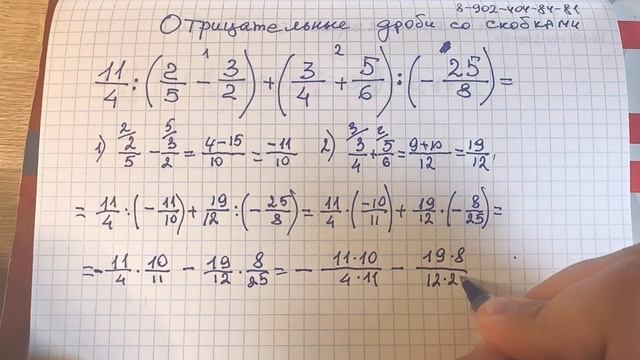 8-902-404-84-81
Отрицательные дроби со скобками
11/4 : (2/5 - 3/2) + (3/4 + 5/6) : (- 25/8) =
1) 2/5 - 3/2 = 4-15/10 = -11/10 2) 3/4 + 5/6 = 9+10/12 = 19/12,
= 11/4 : (- 11/10) + 19/12 : (- 25/8) = 11/4 · (-10/11) + 19/12 · (- 8/25) =
= - 11/4 · 10/11 - 19/12 · 8/25 = - 11·10/4·11 - 19·8/12·2